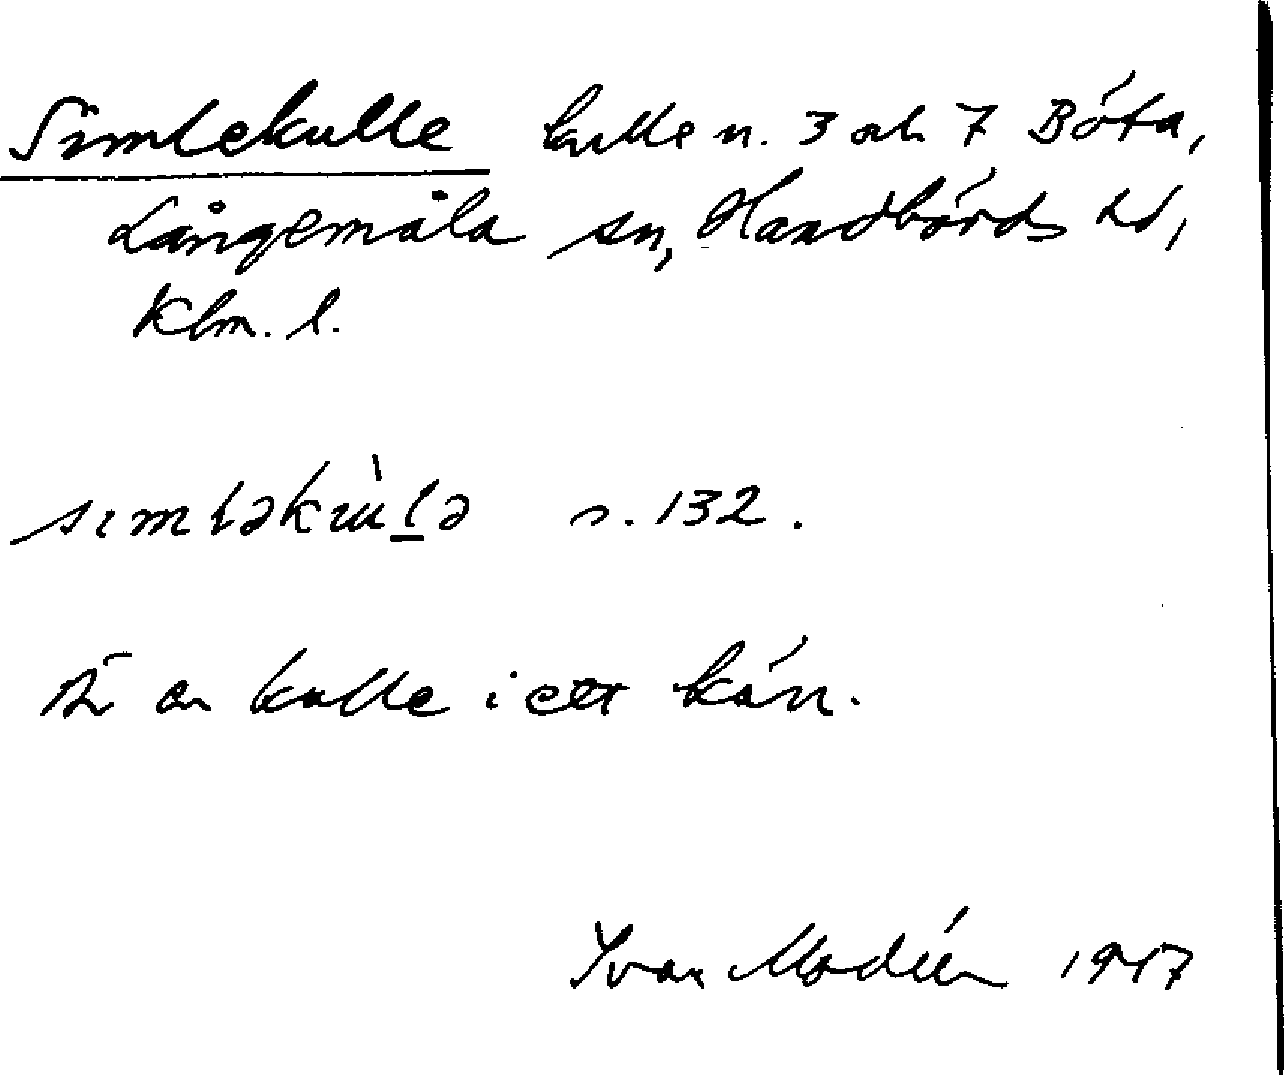 Simlekulle kulle n. 3 och 7 Böta,
Långemåla sn, Handbörds hd,
Klm. l.
sımləkùlə s. 132.
Är en kulle i ett kärr.
Yvan Modéer 1947